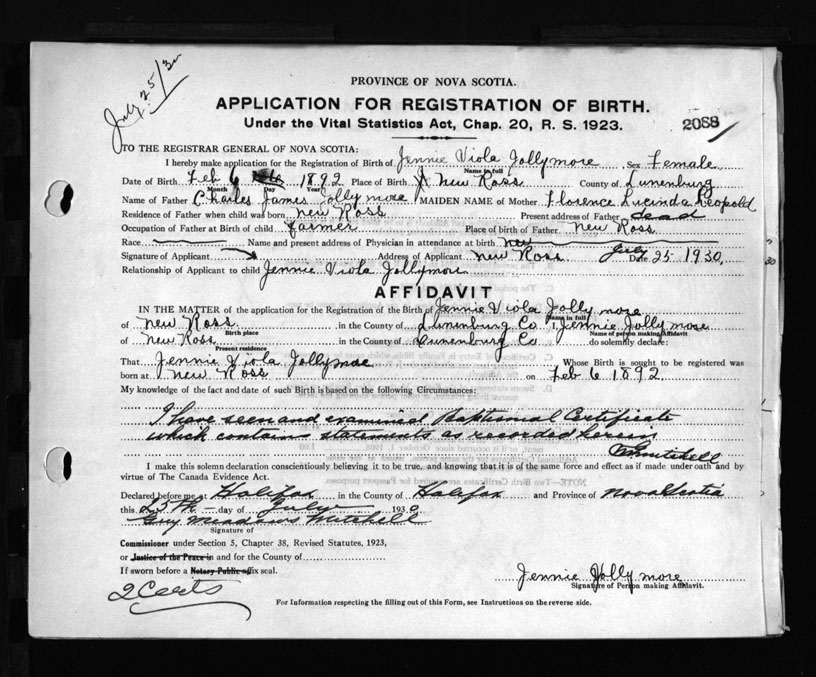 July 25/30
PROVINCE OF NOVA SCOTIA.
APPLICATION FOR REGISTRATION OF BIRTH.
Under the Vital Statistics Act, Chap. 20, R. S. 1923.
2088
TO THE REGISTRAR GENERAL OF NOVA SCOTIA:
I hereby make application for the Registration of Birth of Jennie Viola Jollymore Sex Female
Name in full
Date of Birth Feb 6 1892 Place of Birth New Ross County of Lunenburg
Month Day Year
Name of Father Charles James Jollymore MAIDEN NAME of Mother Florence Lucinda Leopold
Residence of Father when child was born New Ross Present address of Father dead
Occupation of Father at Birth of child farmer Place of birth of Father New Ross
Race Name and present address of Physician in attendance at birth
Signature of Applicant Address of Applicant New Ross Date July 25 1930.
Relationship of Applicant to child Jennie Viola Jollymore
AFFIDAVIT
IN THE MATTER of the application for the Registration of the Birth of Jennie Viola Jollymore
Name in full
of New Ross in the County of Lunenburg Co. I, Jennie Jollymore
Birth place Name of person making Affidavit
of New Ross in the County of Lunenburg Co. do solemnly declare:
Present residence
That Jennie Viola Jollymoe Whose Birth is sought to be registered was
born at New Ross on Feb 6 1892.
My knowledge of the fact and date of such Birth is based on the following Circumstances:
I have seen and examined Baptismal Certificate
which contains statements as recorded herein
Mitchell
I make this solemn declaration conscientiously believing it to be true, and knowing that it is of the same force and effect as if made under oath and by
virtue of The Canada Evidence Act.
Declared before me at Halifax in the County of Halifax and Province of Nova Scotia
this 25th day of July 1930
Guy Meadows Mitchell
Signature of
Commissioner under Section 5, Chapter 38, Revised Statutes, 1923,
or Justice of the Peace in and for the County of
If sworn before a Notary Public affix seal.
Jennie Jollymore
Signature of Person making Affidavit.
2 Certs
For Information respecting the filling out of this Form, see Instructions on the reverse side.